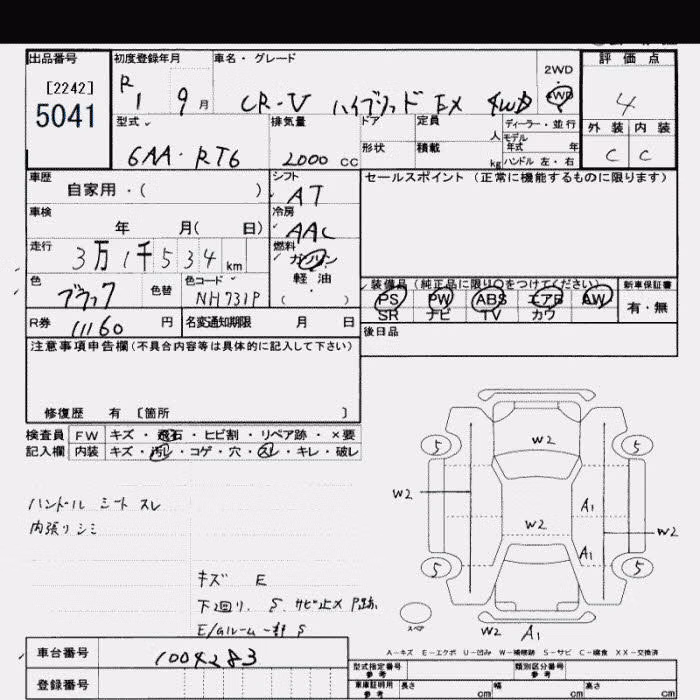 出品番号 初度登録年月 車名・グレード 評価点
[2242]
5041
R1 9月 CR-V ハイブリッド EX 4WD 2WD 4WD 4
型式 排気量 ドア 定員 人 ディーラー・並行 外装 内装
6AA・RT6 2000 CC 形状 積載 kg モデル年式 年 ハンドル 左・右 C C
車歴 自家用・( ) シフト AT セールスポイント(正常に機能するものに限ります)
車検 年 月( 日) 冷房 AAC
走行 3万1千534km 燃料 ガソリン
軽油
( )
色 ブラック 色替 色コード NH731P 装備品(純正品に限り○をつけてください) 新車保証書
PS PW ABS エアB AW 有・無
SR ナビ TV カワ
R券 11160 円 名変通知期限 月 日 後日品
注意事項申告欄(不具合内容等は具体的に記入して下さい)
修復歴 有 〔箇所 〕
検査員 FW キズ・飛石・ヒビ割・リペア跡・×要
記入欄 内装 キズ・汚レ・コゲ・穴・スレ・キレ・破レ
ハンドル シート スレ
内張リ シミ
キズ E
下回り. S. サビ止メ P跡
E/Gルーム一部 S
W2
5 5
W2 A1
W2 W2
A1
5 5
スペア
W2 A1
A-キズ E-エクボ U-凹み W-補修跡 S-サビ C-腐食 XX-交換済
車台番号 1004283
型式指定番号 参考 類別区分番号 参考
登録番号 車庫証明用 参考 長さ cm 幅 cm 高さ cm